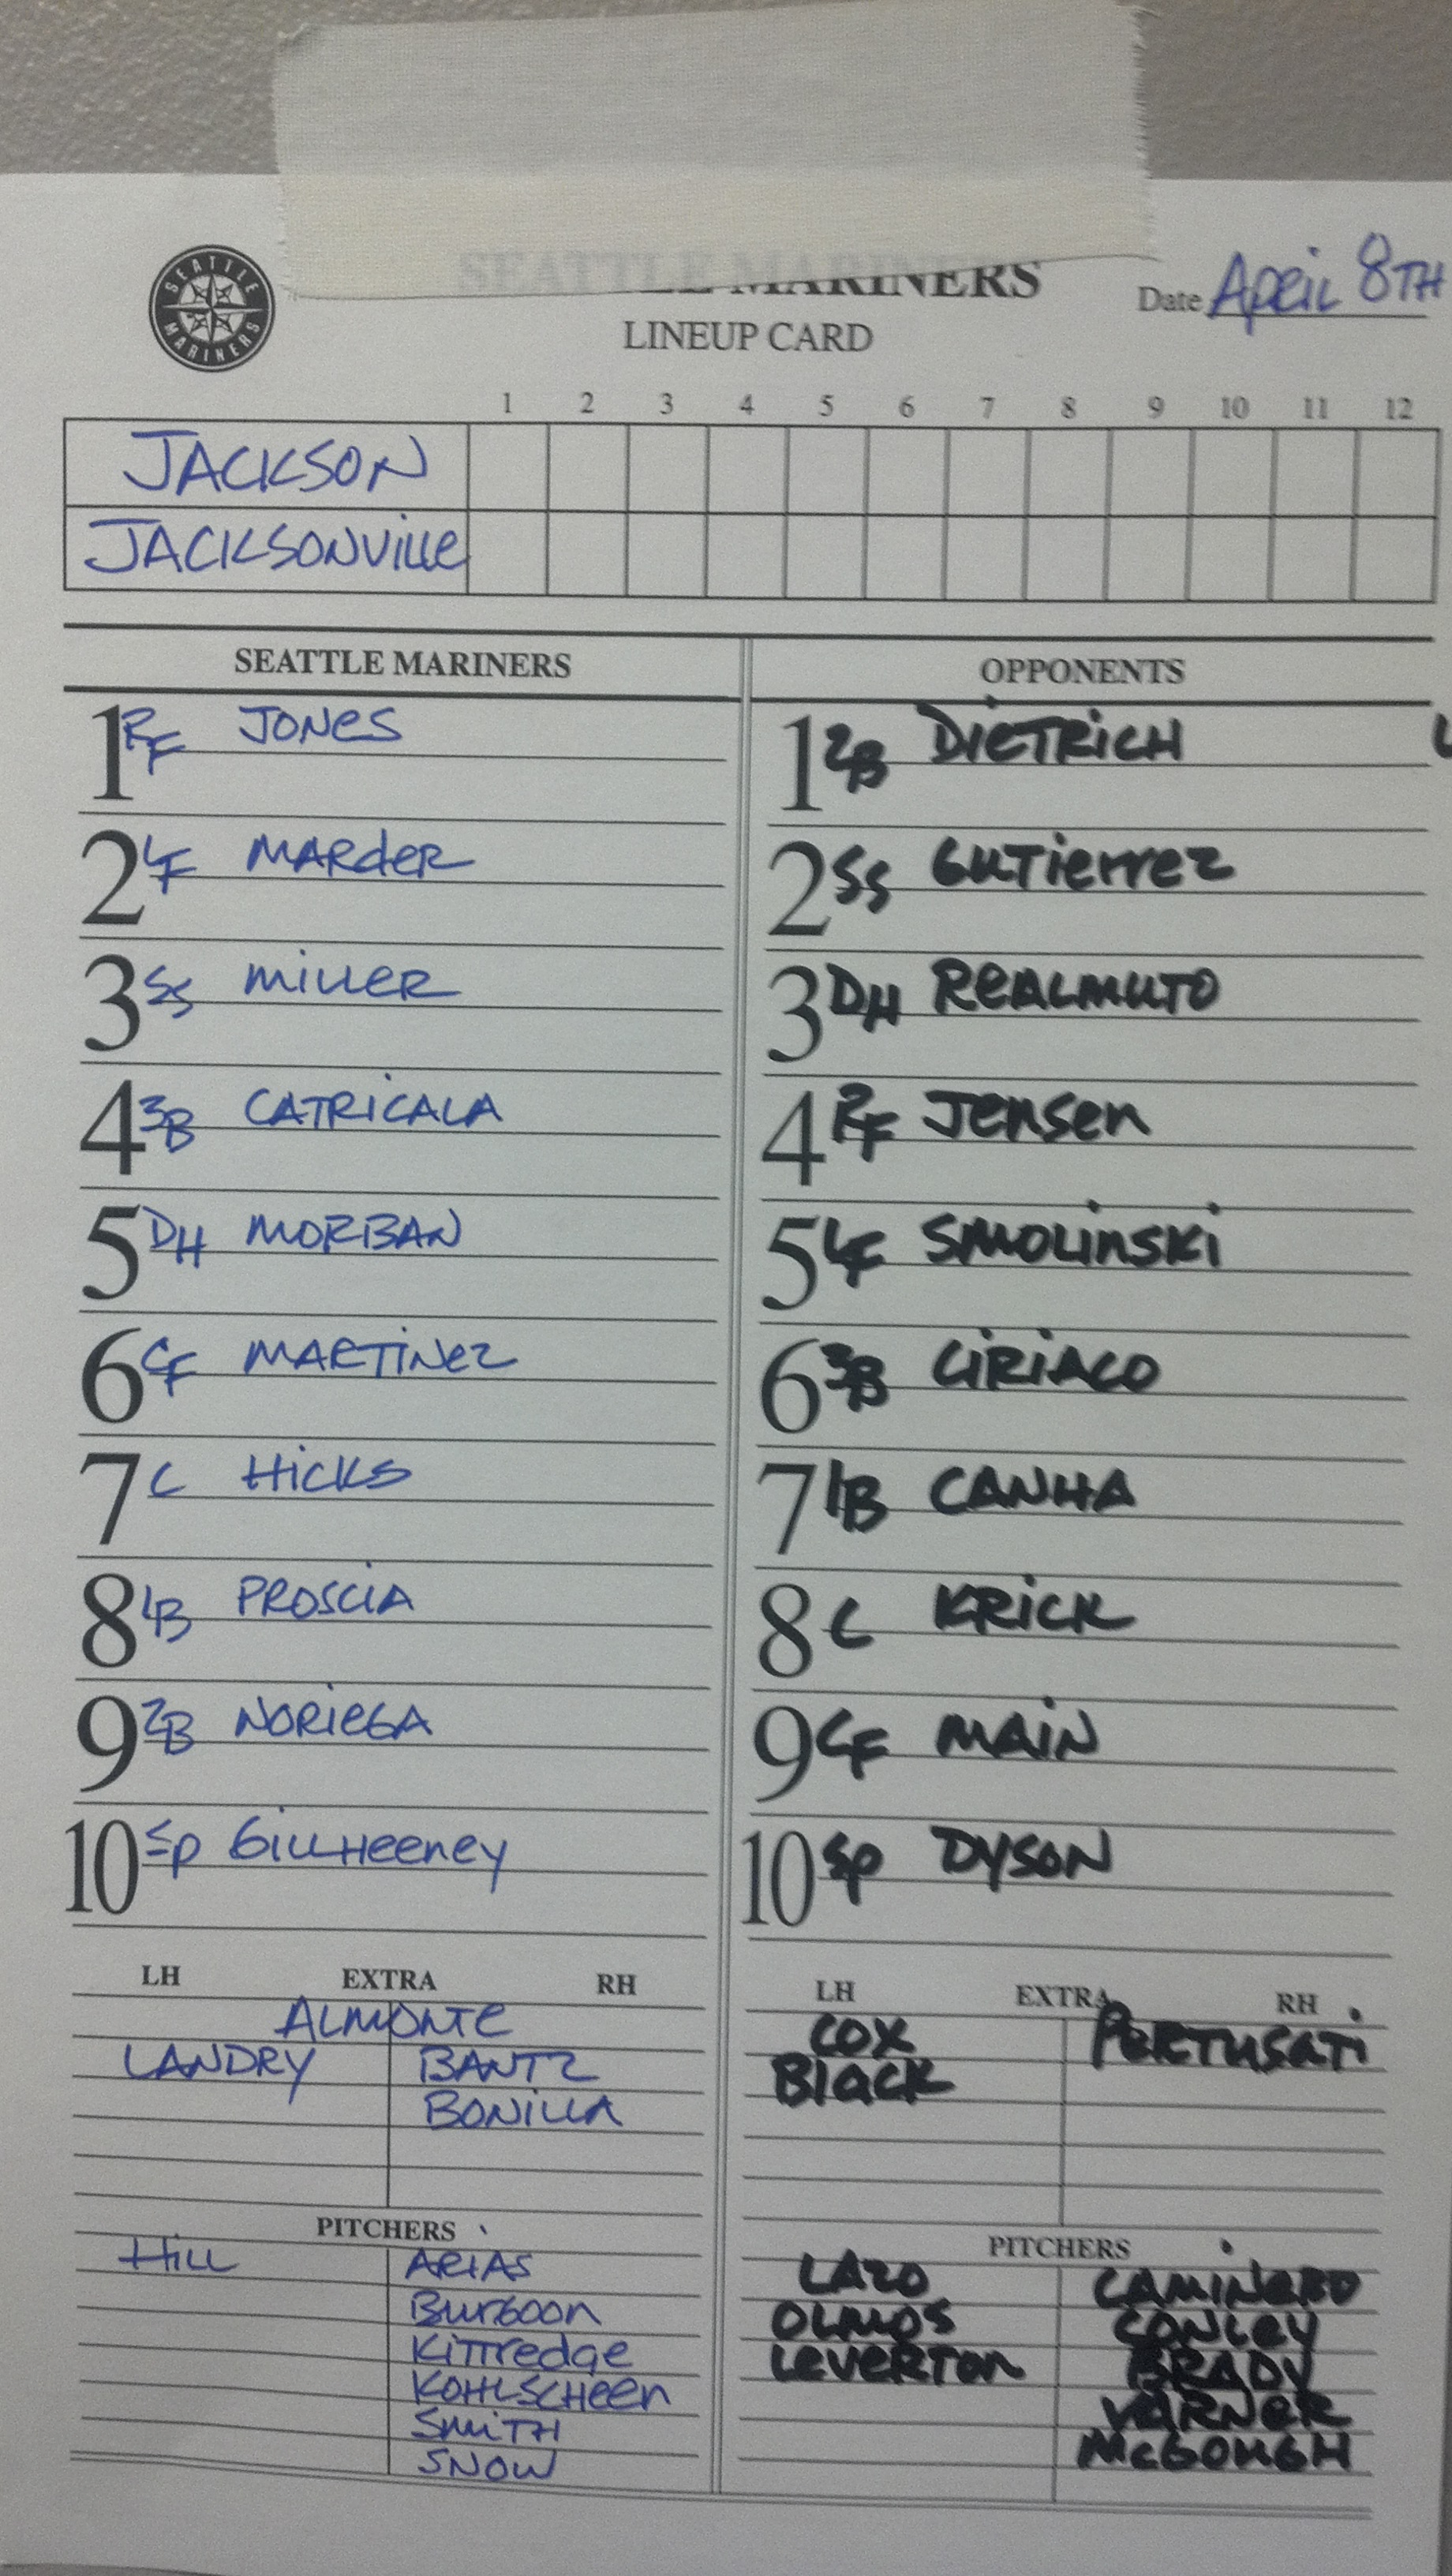 SEATTLE MARINERS
SEATTLE MARINERS
LINEUP CARD
Date April 8TH
1 2 3 4 5 6 7 8 9 10 11 12
JACKSON
JACKSONVILLE
SEATTLE MARINERS
1 RF JONES
2 LF MARDER
3 SS MILLER
4 3B CATRICALA
5 DH MORBAN
6 CF MARTINEZ
7 C HICKS
8 1B PROSCIA
9 2B NORIEGA
10 SP GILLHEENEY
LH EXTRA RH
ALMONTE
LANDRY BANTZ
BONILLA
PITCHERS
HILL ARIAS
BURGOON
KITTREDGE
KOHLSCHEEN
SMITH
SNOW
OPPONENTS
1 2B DIETRICH
2 SS GUTIERREZ
3 DH REALMUTO
4 RF JENSEN
5 LF SMOLINSKI
6 3B CIRIACO
7 1B CANHA
8 C KRICK
9 CF MAIN
10 SP DYSON
LH EXTRA RH
COX PERTUSATI
BLACK
PITCHERS
LAZO CAMINERO
OLMOS CONLEY
LEVERTON BRADY
VARNER
McGOUGH